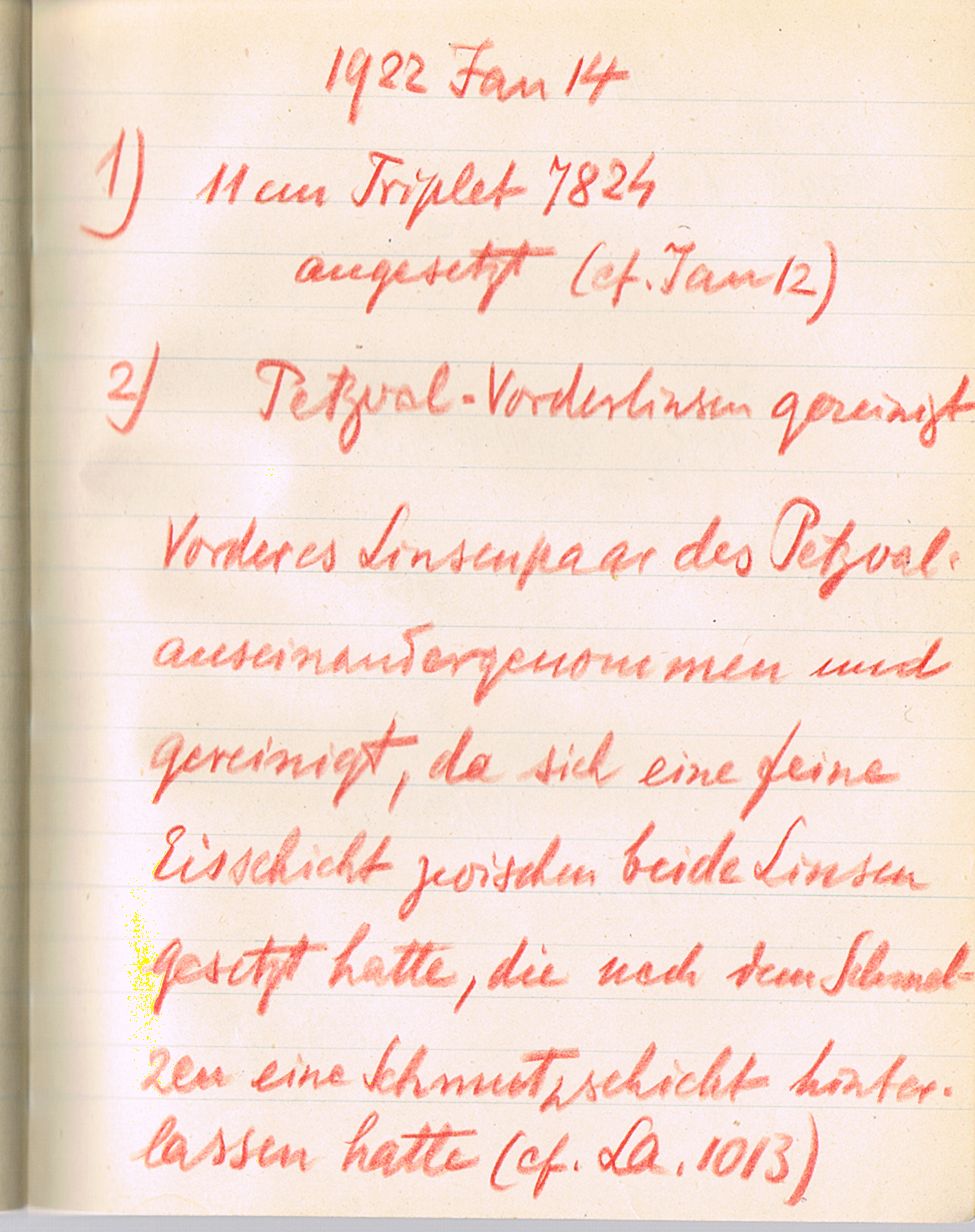 1922 Jan 14
1) 11 cm Triplet 7824
angesetzt (cf. Jan 12)
2) Petzval-Vorderlinsen gereinigt
Vorderes Linsenpaar des Petzval-
auseinandergenommen und
gereinigt, da sich eine feine
Eisschicht zwischen beide Linsen
gesetzt hatte, die nach dem Schmel-
zen eine Schmutzschicht hinter-
lassen hatte (cf. La. 1013)